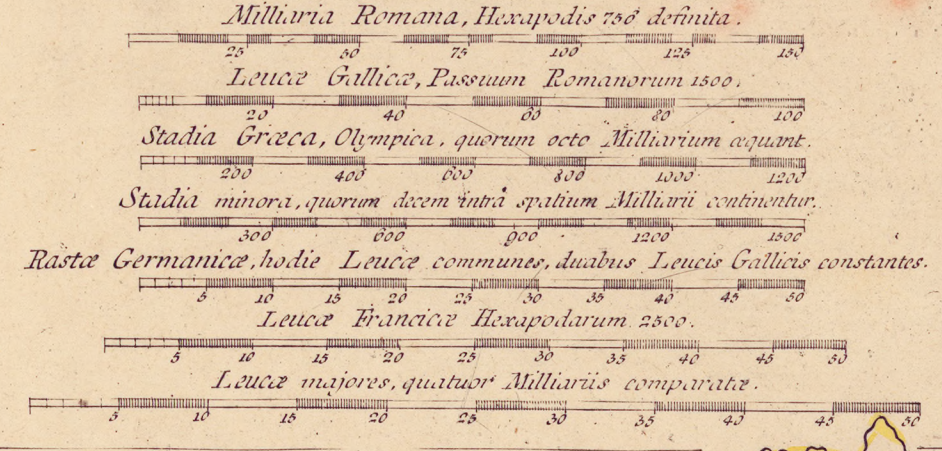 Milliaria Romana, Hexapodis 756 definita.
25 50 75 100 125 150
Leucæ Gallicæ, Passuum Romanorum 1500.
20 40 60 80 100
Stadia Græca, Olympica, quorum octo Milliarium æquant.
200 400 600 800 1000 1200
Stadia minora, quorum decem intrà spatium Milliarii continentur.
300 600 900 1200 1500
Rastæ Germanicæ, hodie Leucæ communes, duabus Leucis Gallicis constantes.
5 10 15 20 25 30 35 40 45 50
Leucæ Francicæ Hexapodarum 2500.
5 10 15 20 25 30 35 40 45 50
Leucæ majores, quatuor Milliariis comparatæ.
5 10 15 20 25 30 35 40 45 50